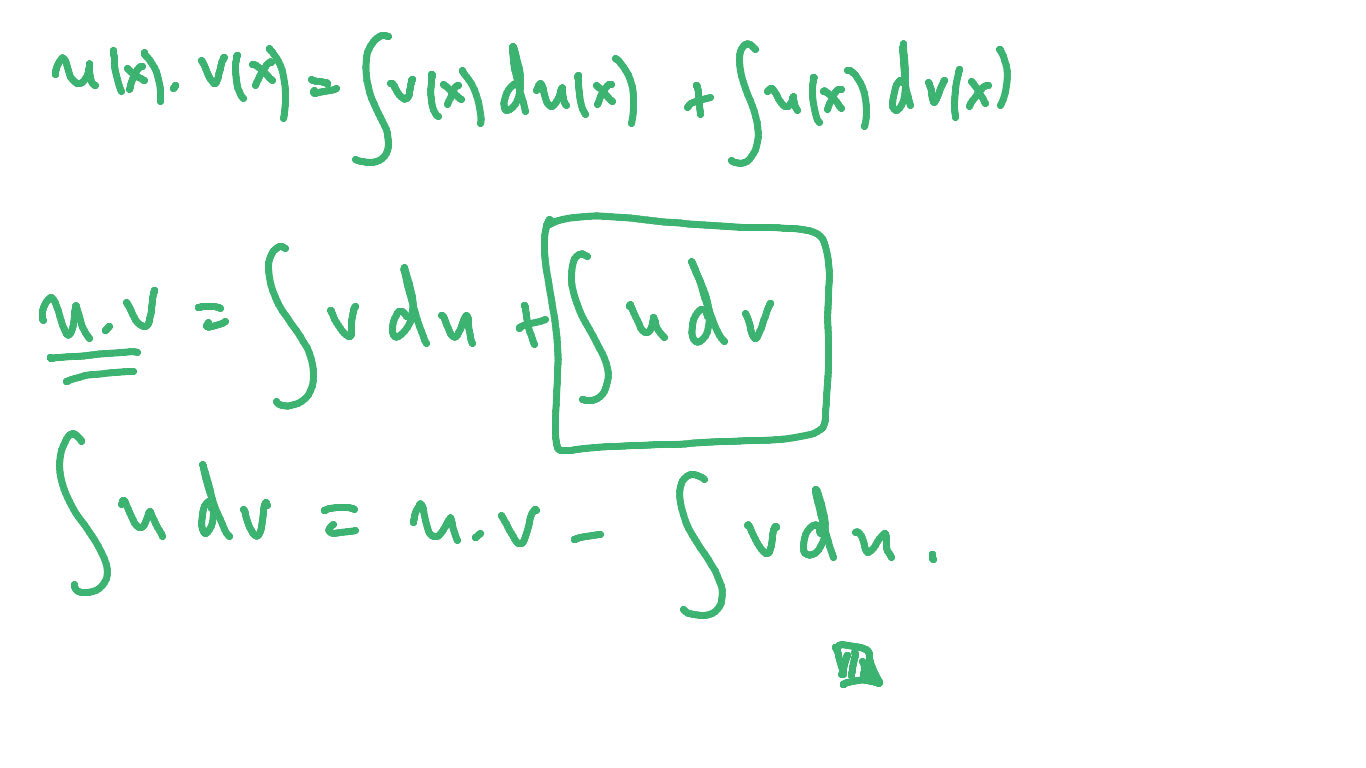 u(x).v(x) = ∫v(x)du(x) + ∫u(x)dv(x)
u.v = ∫vdu + ∫udv
∫udv = u.v - ∫vdu.